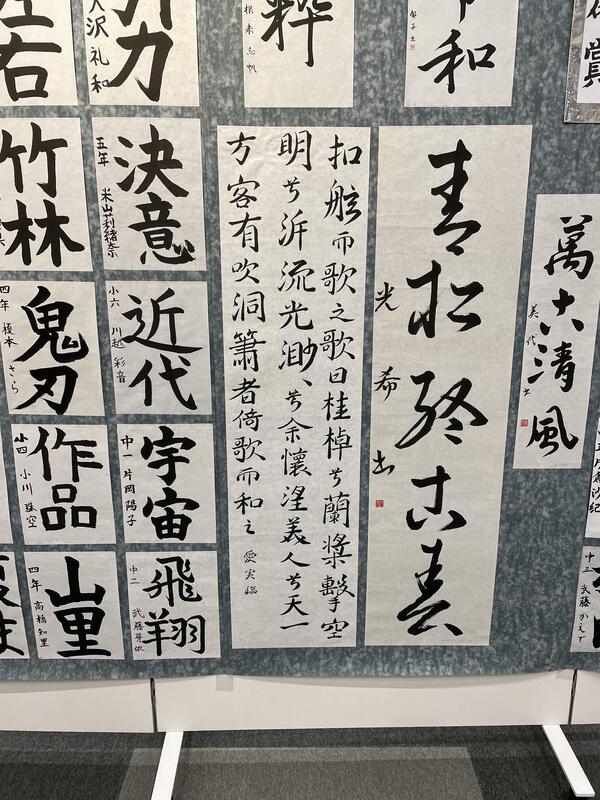 和
粋
引力
大沢礼和
左右
萬古清風
美代書
青松終古春
光希書
扣舷而歌之歌曰桂棹兮蘭槳擊空
明兮泝流光渺、兮余懷望美人兮天一
方客有吹洞簫者倚歌而和之 愛実臨
決意
五年 米山莉緒奈
竹林
近代
小六 川越彩音
鬼刃
四年 榎本さら
宇宙
中一 片岡陽子
作品
小四 小川
飛翔
中二 武藤芽依
山里
四年 高橋知里
中三 武藤かえで